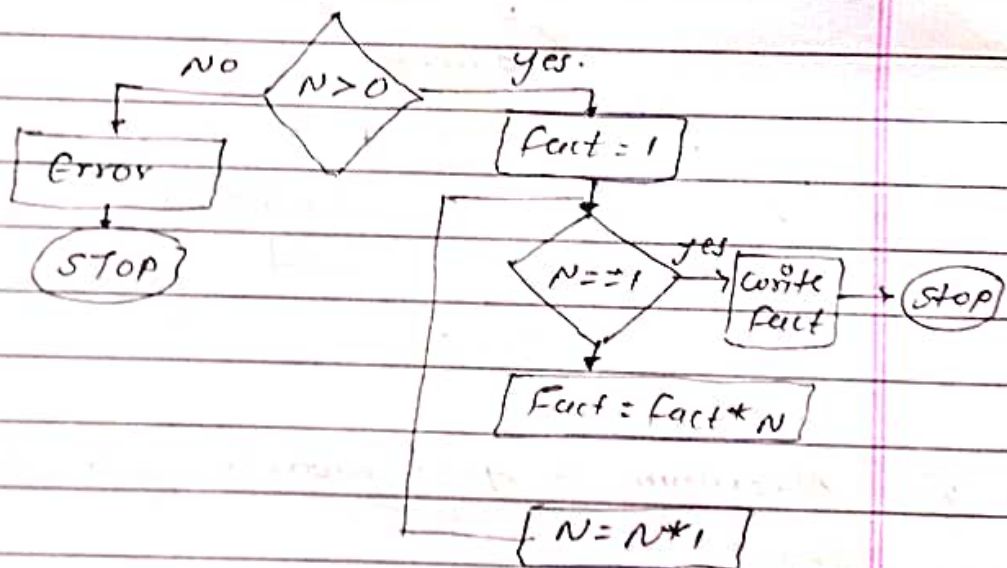 NO
N>0
yes.
Error
Fact = 1
STOP
N==1
yes
write
Fact
STOP
Fact = Fact * N
N = N*1